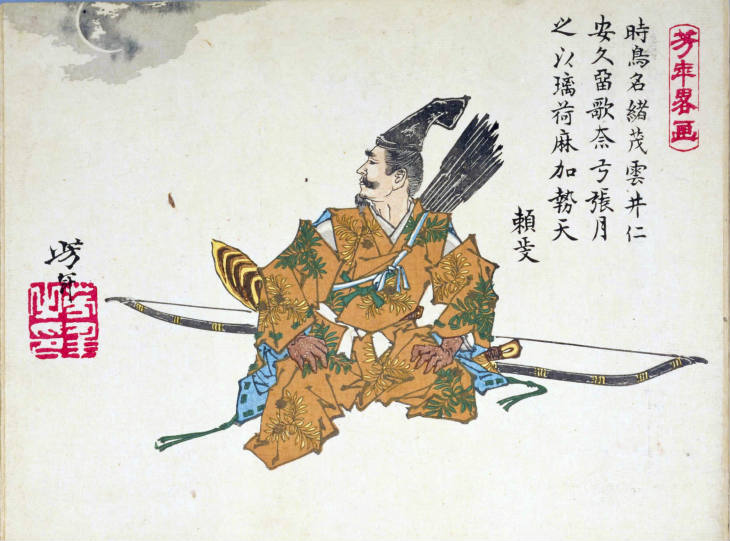 芳年畧画
時鳥名緒茂雲井仁
安久留歌奈弓張月
之以璃荷麻加勢天
頼政
芳年
芳年之印